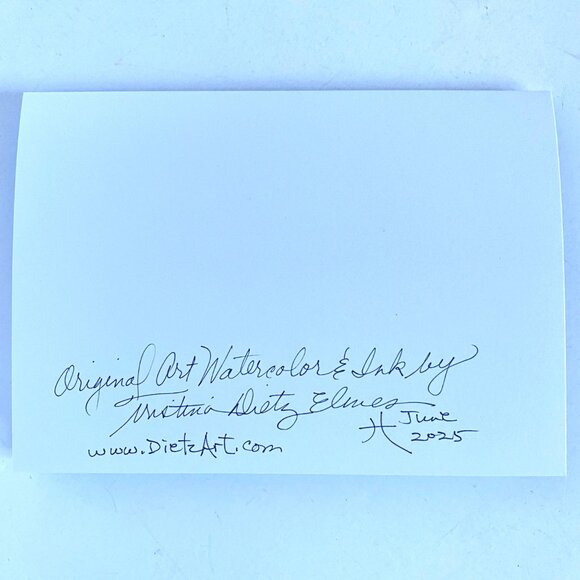 Original Art Watercolor & Ink by
Tristina Dietz Elmes
www.DietzArt.com
June
2025